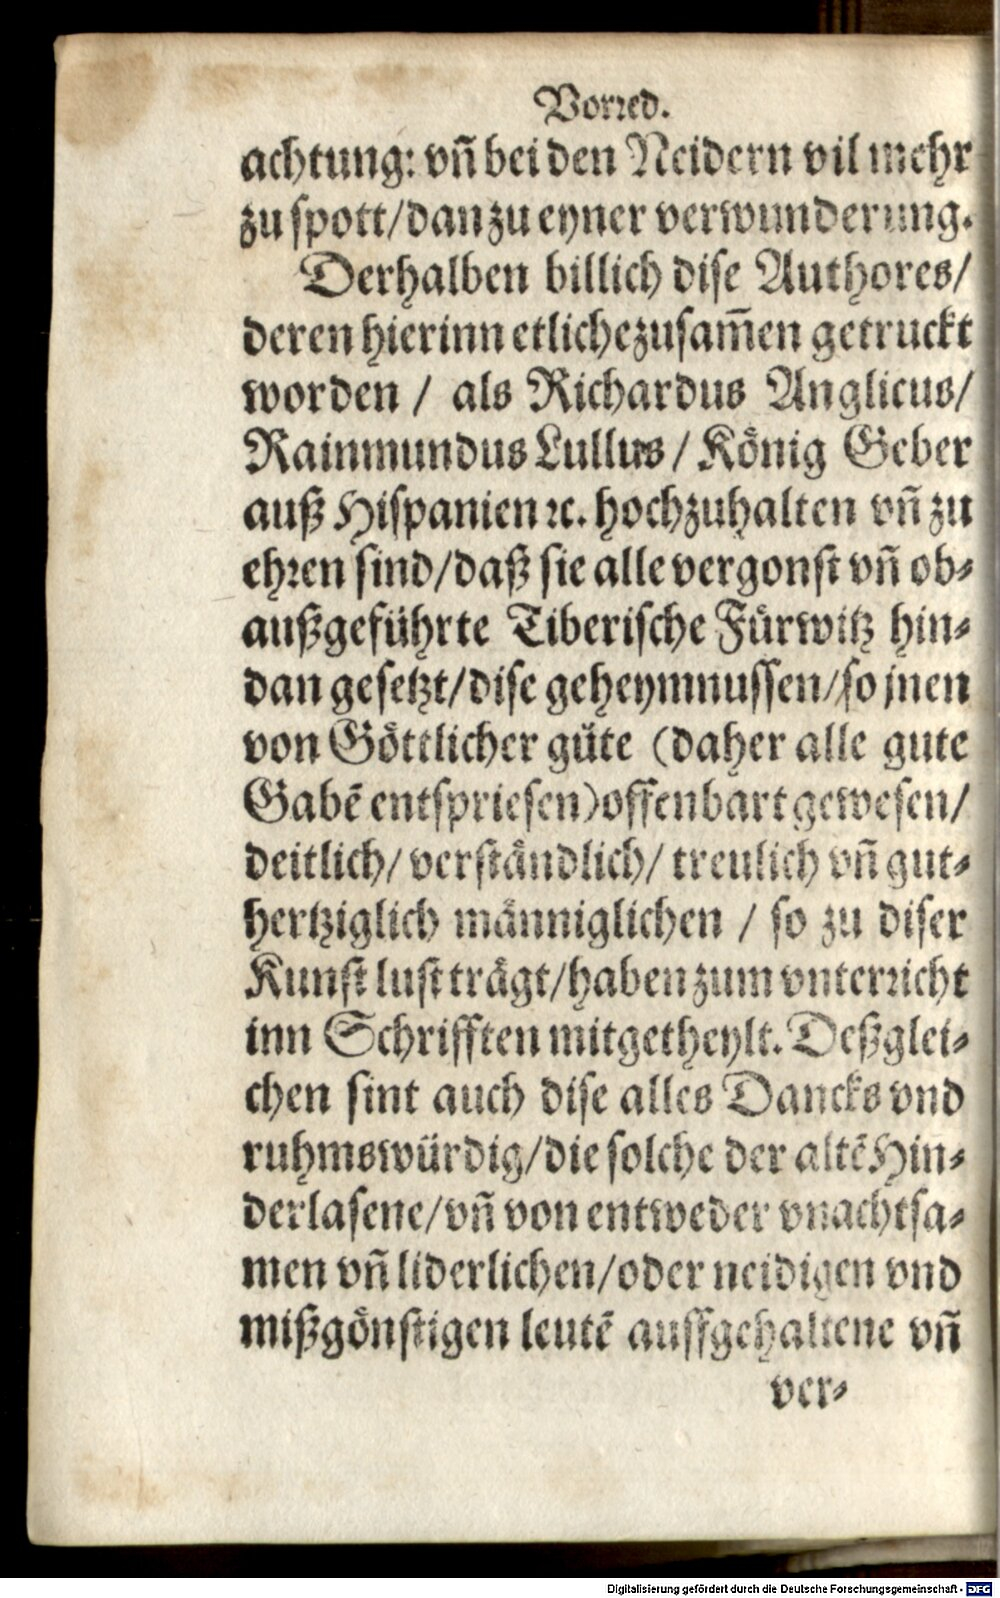 Vorred.
achtung: vñ bei den Neidern vil mehr
zu spott/dan zu eyner verwunderung.
Derhalben billich dise Authores/
deren hierinn etliche zusam̃en getruckt
worden / als Richardus Anglicus/
Rainmundus Lullus / König Geber
auß Hispanien ꝛc. hochzuhalten vñ zu
ehren sind/daß sie alle vergonst vñ ob-
außgeführte Tiberische Fürwitz hin-
dan gesetzt/dise geheymnussen/so jnen
von Göttlicher güte (daher alle gute
Gabẽ entspriesen) offenbart gewesen/
deitlich/ verständlich/ treulich vñ gut-
hertziglich männiglichen / so zu diser
Kunst lust trägt/haben zum vnterricht
inn Schrifften mitgetheylt. Deßglei-
chen sint auch dise alles Dancks vnd
ruhmswürdig/die solche der altẽ Hin-
derlasene/vñ von entweder vnachtsa-
men vñ liderlichen/oder neidigen vnd
mißgönstigen leutẽ auffgehaltene vñ
ver-
Digitalisierung gefördert durch die Deutsche Forschungsgemeinschaft - DFG